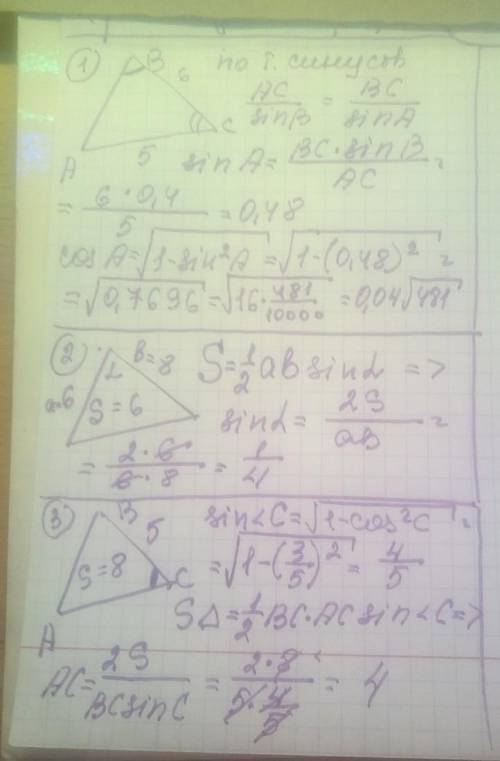 ① B 6 по т. синусов
AC/sinB = BC/sinA
C
A 5 sin A = BC·sin B/AC =
= 6·0,4/5 = 0,48
cos A = √(1-sin²A) = √(1-(0,48)²) =
= √0,7696 = √(16·481/10000) = 0,04√481
② B=8 S=1/2 ab sinL =>
L
a=6 S=6 sinL = 2S/ab =
= 2·6/6·8 = 1/4
③ B 5 sin<C = √(1-cos²C) =
S=8 C = √(1-(3/5)²) = 4/5
S△ = 1/2 BC·AC sin<C =>
A
AC = 2S/BCsinC = 2·8/5·4/5 = 4